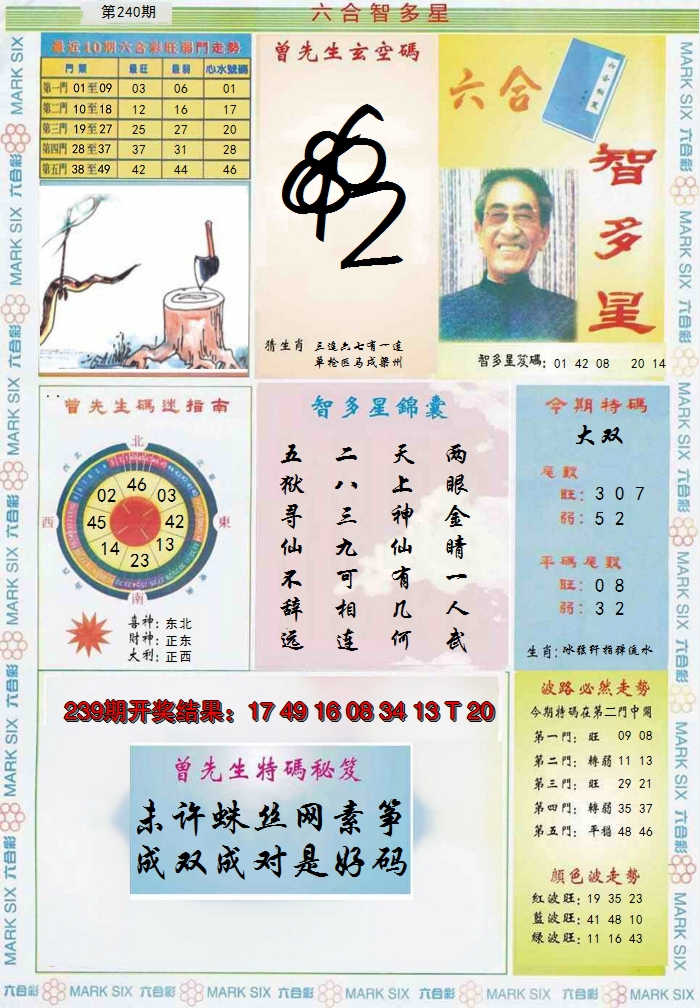 第240期
六合智多星
最近10期六合彩旺弱門走勢
門類 最旺 最弱 心水號碼
第一門 01至09 03 06 01
第二門 10至18 12 16 17
第三門 19至27 25 27 20
第四門 28至37 37 31 28
第五門 38至49 42 44 46
曾先生玄空碼
猜生肖 三连六七有一连
单枪匹马成梁州
六合
智多星
智多星笈碼: 01 42 08 20 14
曾先生碼迷指南
北
東
南
西
46
03
42
13
23
14
45
02
喜神: 东北
财神: 正东
大利: 正西
智多星錦囊
两眼金睛一人武
天上神仙有几何
二八三九可相连
五狱寻仙不辞远
今期特碼
大双
尾數
旺: 3 0 7
弱: 5 2
平碼尾數
旺: 0 8
弱: 3 2
生肖: 冰弦纤指弹流水
239期开奖结果: 17 49 16 08 34 13 T 20
曾先生特碼秘笈
未许蛛丝网素筝
成双成对是好码
波路必然走勢
今期特碼在第二門中開
第一門: 旺 09 08
第二門: 轉弱 11 13
第三門: 旺 29 21
第四門: 轉弱 35 37
第五門: 平穩 48 46
顏色波走勢
紅波旺: 19 35 23
藍波旺: 41 48 10
綠波旺: 11 16 43
六合彩 MARK SIX 六合彩 MARK SIX 六合彩 MARK SIX 六合彩 MARK SIX 六合彩